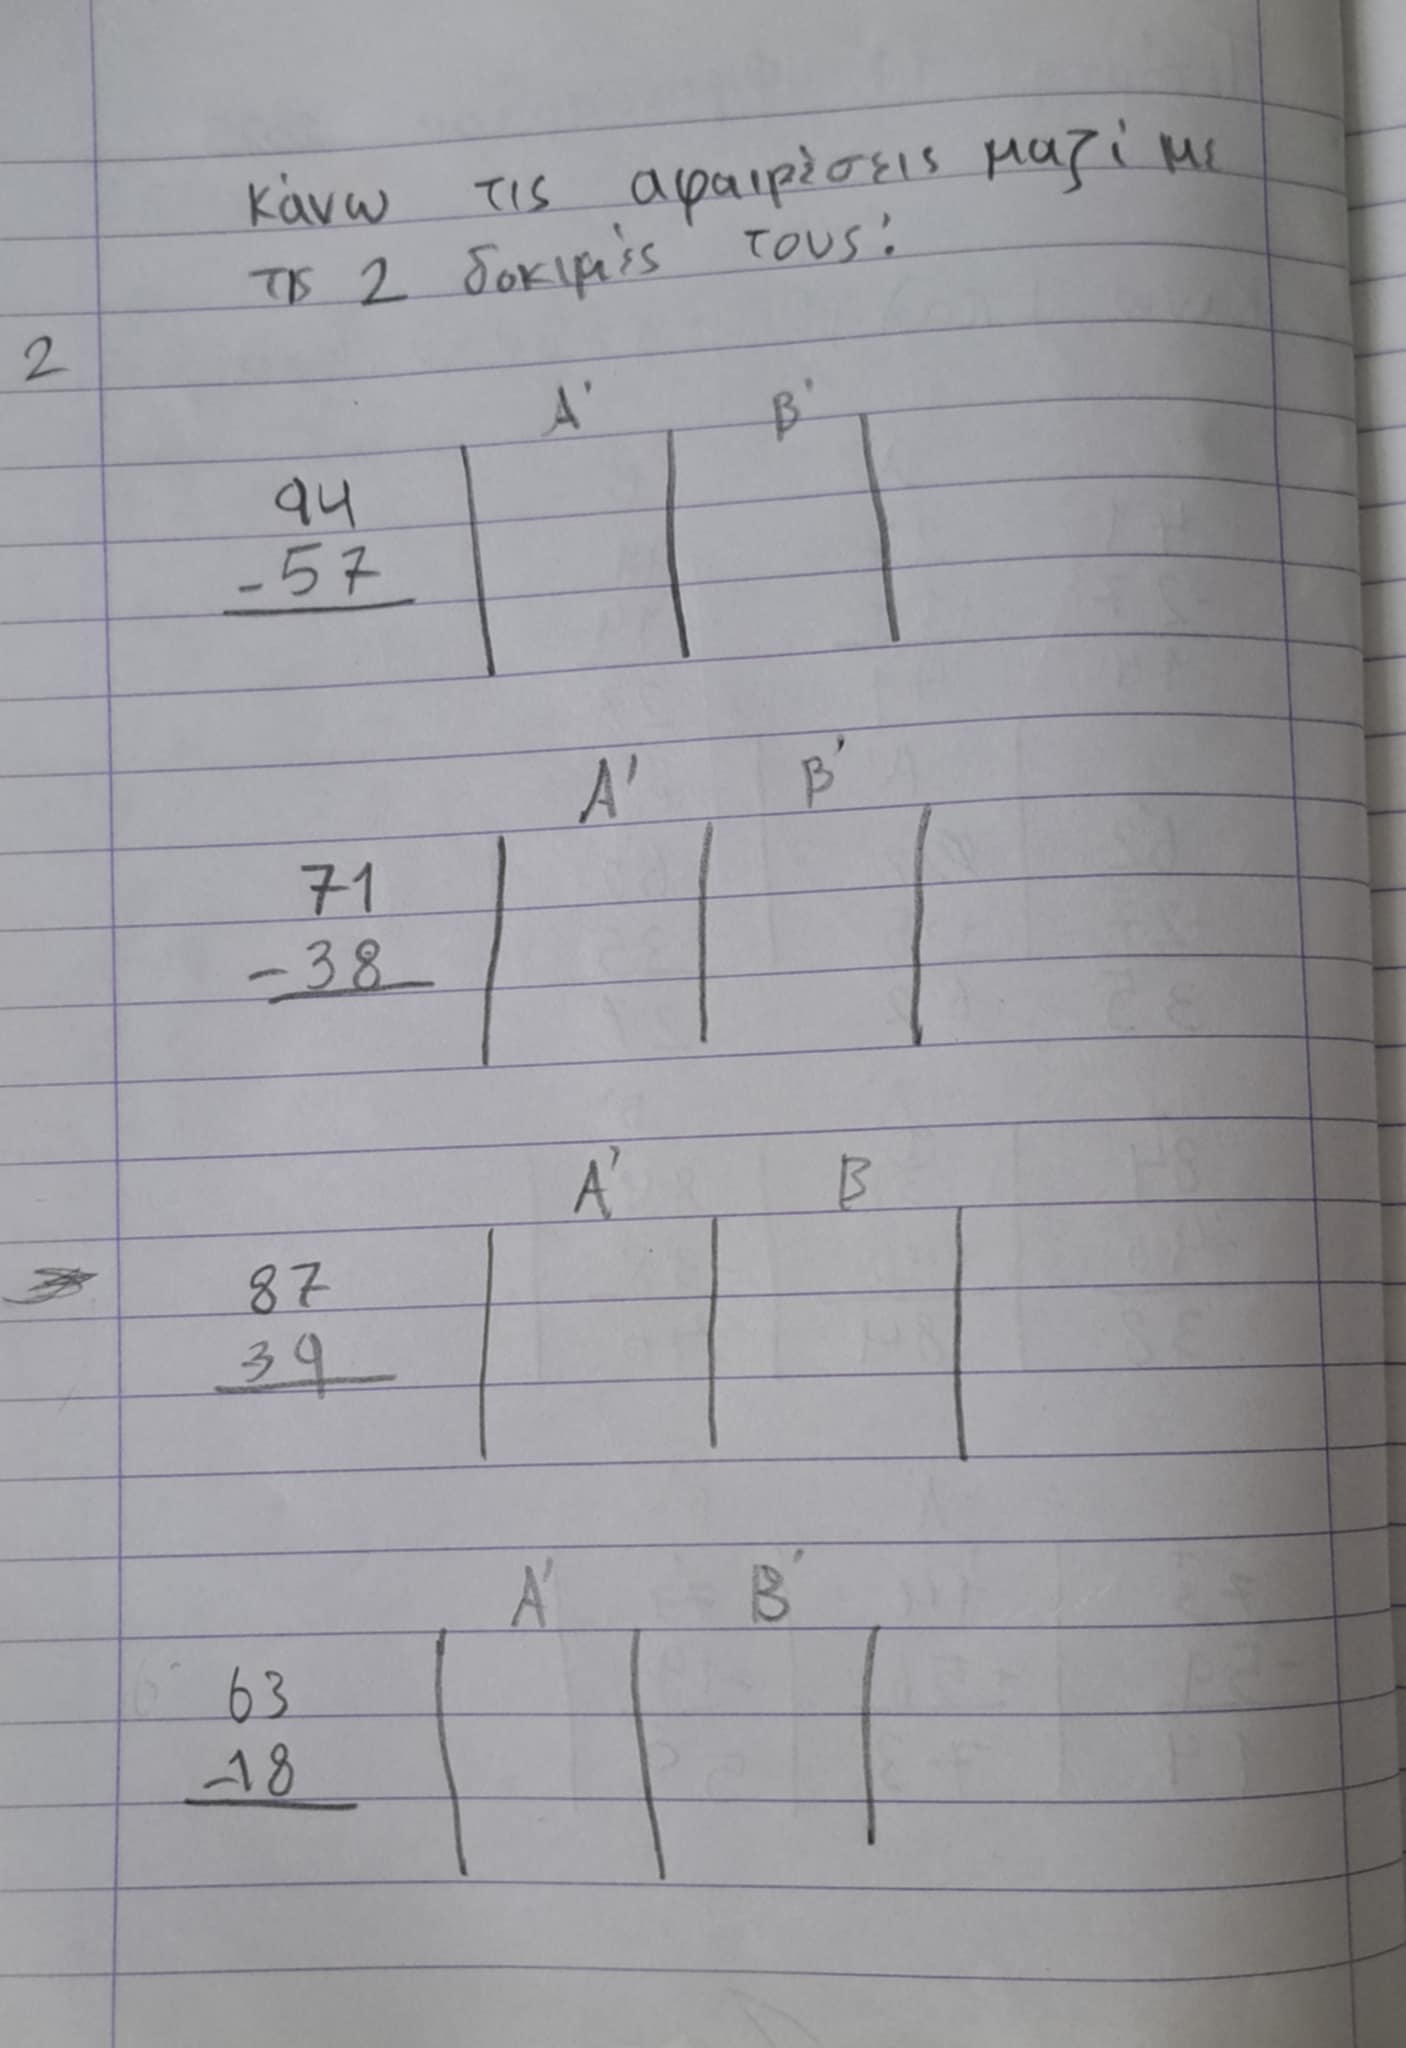 κάνω τις αφαιρέσεις μαζί με
τις 2 δοκιμές τους:
2
Α' Β'
94
-57
Α' Β'
71
-38
Α' Β
87
39
Α' Β'
63
-18